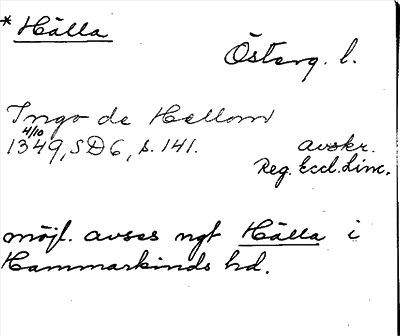 * Hälla
Österg. l.
Ingo de Hællom
4/10
1349, SD6, s. 141.
avskr.
Reg. Eccl. Linc.
möjl. avses ngt Hälla i
Hammarkinds hd.